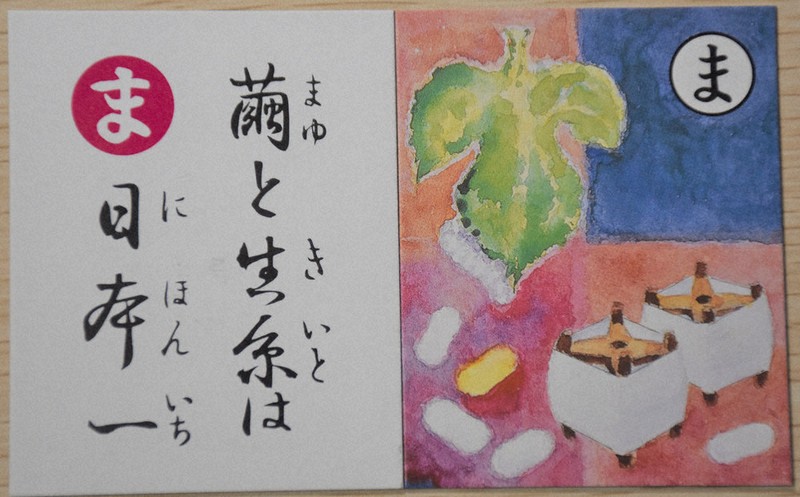 ま
繭と生糸は
まゆ きいと
日本一
にほんいち
ま